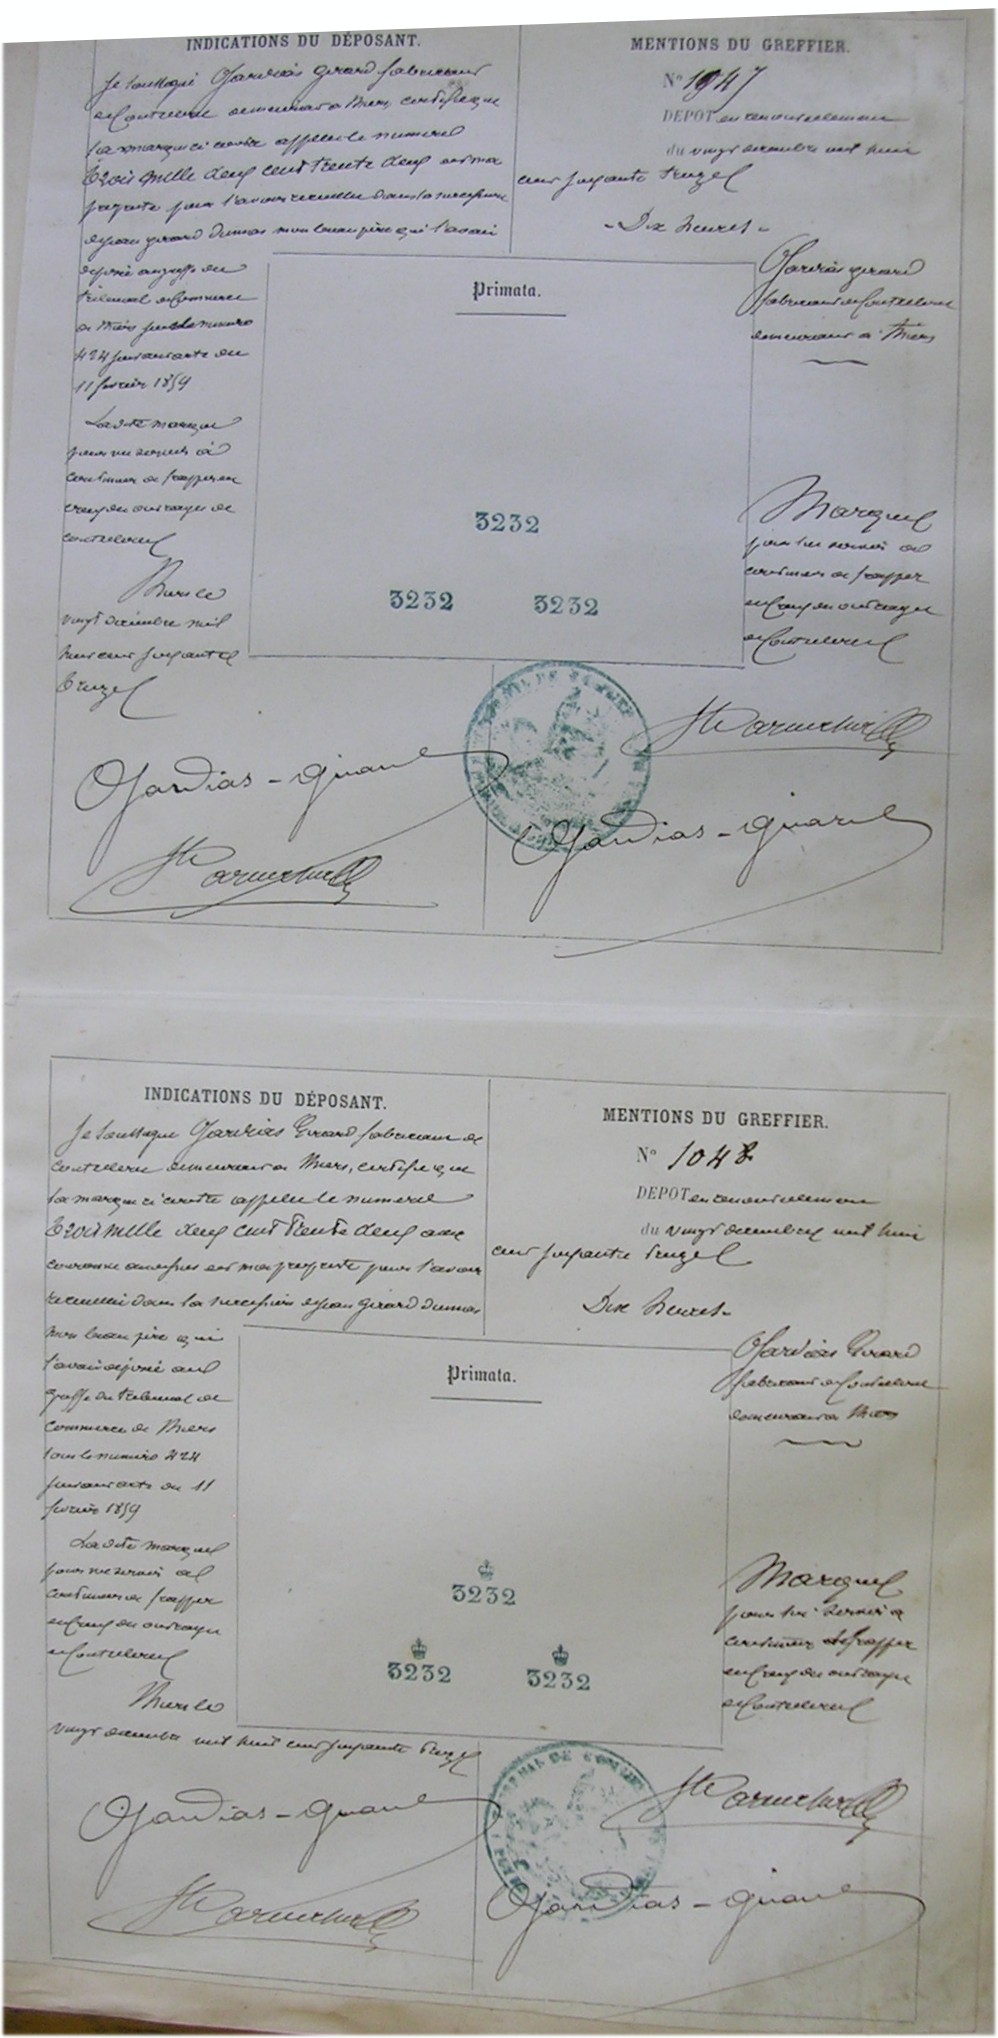 INDICATIONS DU DÉPOSANT.
Je soussigné Ojardias Girard fabricant
de Coutellerie demeurant à Thiers certifie que
la marque ci contre appelée le numero
Trois mille deux cent trente deux est ma
propriété pour l'avoir recueillie dans la succession
de Jean Girard Dumas mon beau père qui l'avait
déposée au greffe du
tribunal de Commerce
de Thiers sous le numéro
424 suivant acte du
11 février 1859
La dite marque
pour me servir à
continuer de frapper en
creux des ouvrages de
coutellerie
Thiers le
vingt décembre mil
huit cent soixante
treize
Ojardias-Girard
MENTIONS DU GREFFIER.
N° 1047
DÉPOT en renouvellement
du vingt decembre mil huit
cent soixante treize
Dix heures
Ojardias Girard
fabricant de Coutellerie
demeurant à Thiers
Marque
pour lui servir à
continuer de frapper
en creux des ouvrages
de Coutellerie
Ojardias-Girard
Primata.
3232
3232 3232
INDICATIONS DU DÉPOSANT.
Je soussigné Ojardias Girard fabricant de
coutellerie demeurant à Thiers, certifie que
la marque ci contre appelée le numero
Trois mille deux cent trente deux avec
couronne au dessus est ma propriété pour l'avoir
recueillie dans la succession de Jean Girard Dumas
mon beau père qui
l'avait déposée au
greffe du tribunal de
commerce de Thiers
sous le numéro 424
suivant acte du 11
février 1859
La dite marque
pour me servir à
continuer de frapper
en creux des ouvrages
de Coutellerie
Thiers le
vingt decembre mil huit cent soixante treize
Ojardias-Girard
MENTIONS DU GREFFIER.
N° 1048
DÉPOT en renouvellement
du vingt decembre mil huit
cent soixante treize
Dix heures
Ojardias Girard
fabricant de Coutellerie
demeurant à Thiers
Marque
pour lui servir à
continuer de frapper
en creux des ouvrages
de Coutellerie
Ojardias-Girard
Primata.
3232
3232 3232